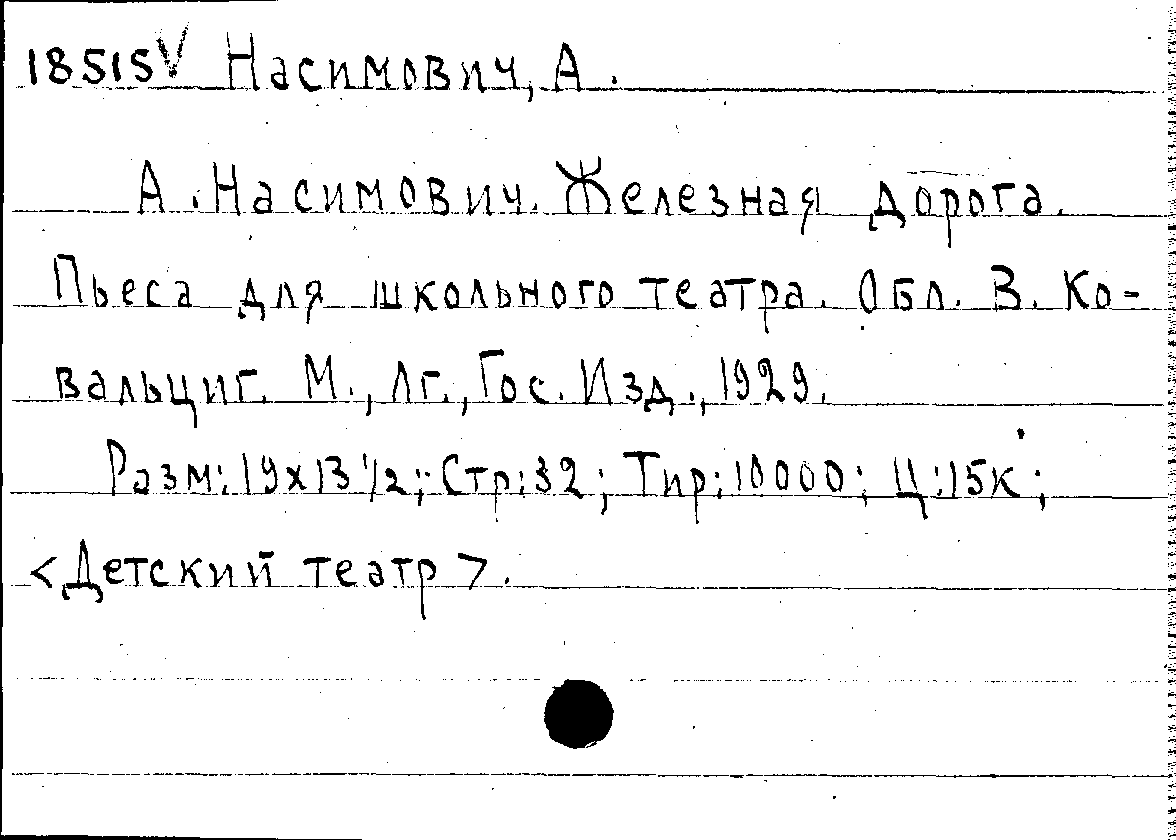 18515 V Насимович, А.
А. Насимович. Железная дорога.
Пьеса для школьного театра. Обл. В. Ко-
вальциг. М., Лг., Гос. Изд., 1929.
Разм: 19х13 1/2; Стр: 32; Тир: 10000; Ц: 15к;
<Детский театр>.